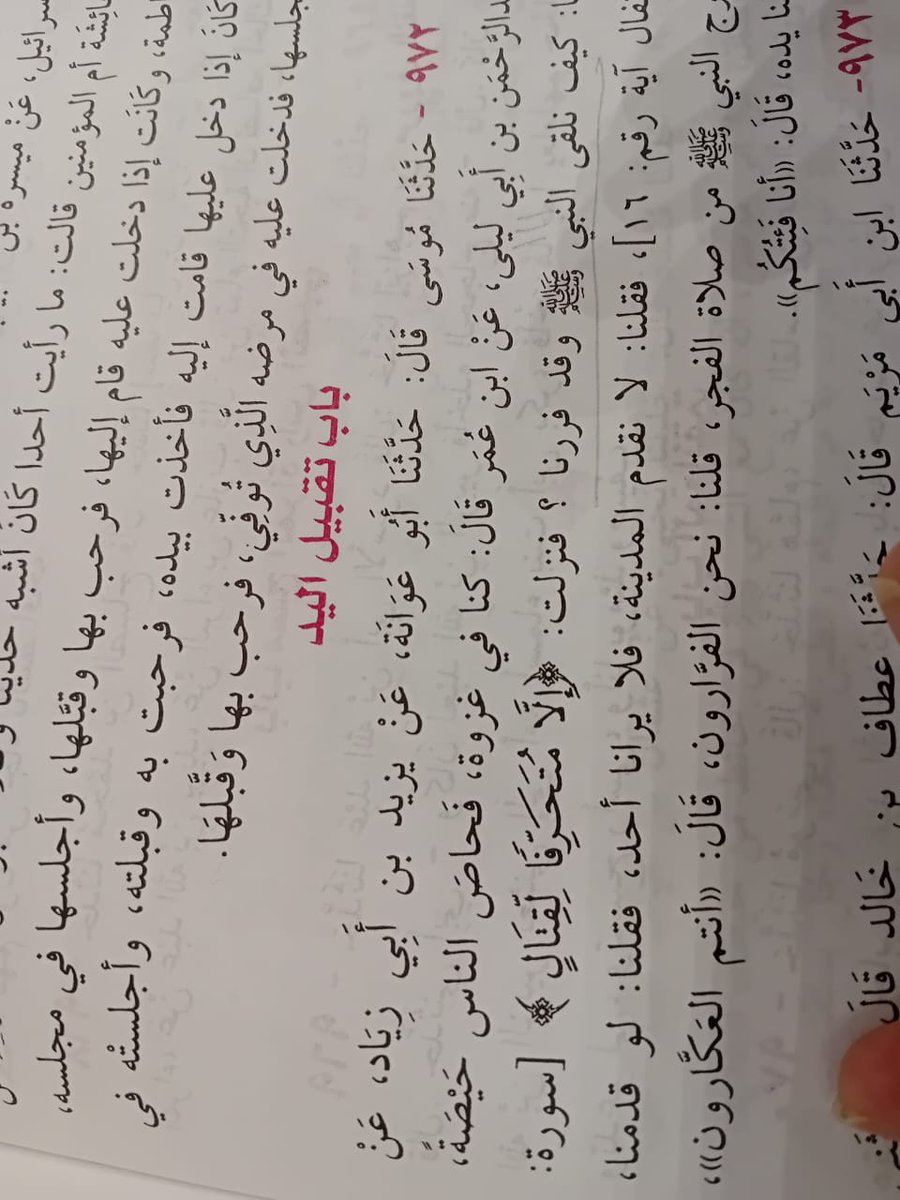 سرائيل، عَنْ ميسره بن
عائِشَة أم المؤمنين قالت: ما رأيت أحدا كَانَ أشبه حديثا
فاطمة، وكَانَت إذا دخلت عليه قام إليها، فرحب بها وقبَّلها، وأجلسها في مجلسه،
كَانَ إذا دخل عليها قامت إليه فأخذت بيده، فرحبت به وقبلته، وأجلسته في
مجلسها، فدخلت عليه في مرضه الَّذِي تُوُفِّيَ، فرحب بها وَقَبَّلَهَا.
باب تقبيل اليد
٩٧٢ - حَدَّثَنَا مُوسَى قَالَ: حَدَّثَنَا أَبُو عَوَانَة، عَنْ يزيد بن أَبِي زِيَاد، عَنْ
عبدالرَّحْمَن بن أَبِي ليلى، عَنْ ابن عُمَر قَالَ: كنا في غزوة، فَحَاصَ الناس حَيْصَةً،
نا: كيف نلقى النبي ﷺ وقد فررنا ؟ فنزلت: ﴿إِلَّا مُتَحَرِّفًا لِّقِتَالٍ﴾ [سورة:
نفال آية رقم: ١٦]، فقلنا: لا نقدم المدينة، فلا يرانا أحد، فقلنا: لو قدمنا،
رج النبي ﷺ من صلاة الفجر، قلنا: نحن الفرَّارون، قَالَ: «أنتم العَكَّارون»،
نا يده، قَالَ: «أنا فَئِتُكُم».
٩٧٣- حَدَّثَنَا ابن أَبِي مَرْيَم قَالَ: حَدَّثَنَا عطاف بن خَالد قَالَ